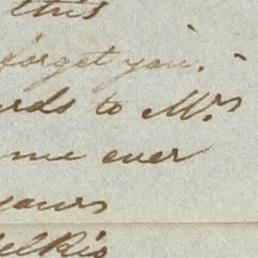 this
forget you. -
rds to Mrs
me ever
yours